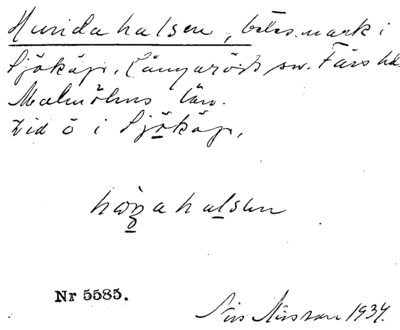 Hundahalsen, betesmark i
Sjökåp. Långaröds sn. Färs hd.
Malmöhus län.
Vid ö i Sjökåp,
hoŋahalsen
Nr 5585.
Nilsson 1934.